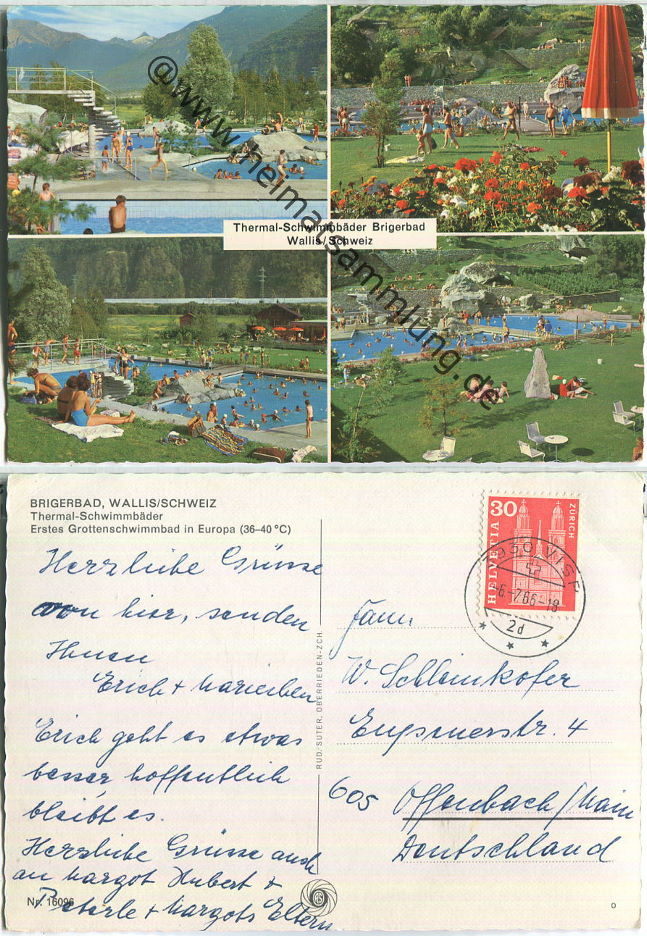 @www.heimatsammlung.de
Thermal-Schwimmbäder Brigerbad
Wallis/Schweiz
BRIGERBAD, WALLIS/SCHWEIZ
Thermal-Schwimmbäder
Erstes Grottenschwimmbad in Europa (36–40 °C)
Herzliche Grüsse
von hier, senden
Ihnen
Erich + Marieiben
Erich geht es etwas
besser, hoffentlich
bleibt es.
Herzliche Grüsse auch
an Margot Hubert +
Peterle + Margots Eltern
Nr. 16096
RUD. SUTER, OBERRIEDEN-ZCH.
HELVETIA
30
ZÜRICH
VISP
-6.-7.66-18
2d
Fam.
W. Schleinkofer
str. 4
605 Offenbach/Main
Deutschland